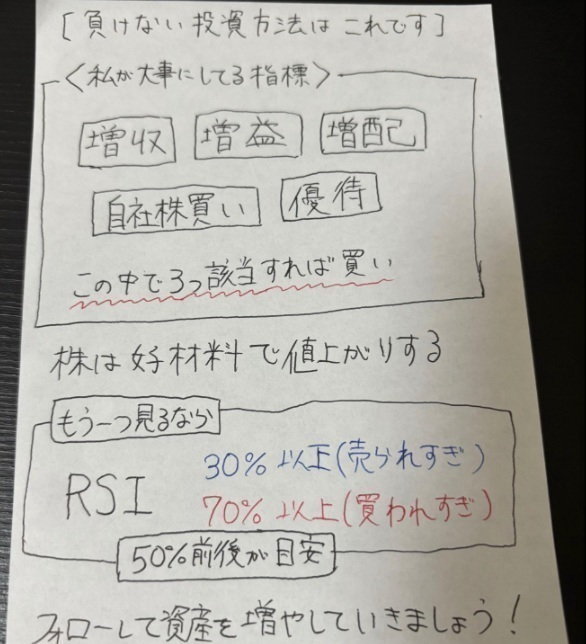 [負けない投資方法はこれです]
<私が大事にしてる指標>
増収 増益 増配
自社株買い 優待
この中で3つ該当すれば買い
株は好材料で値上がりする
もう一つ見るなら
RSI 30%以下(売られすぎ)
70%以上(買われすぎ)
50%前後が目安
フォローして資産を増やしていきましょう!